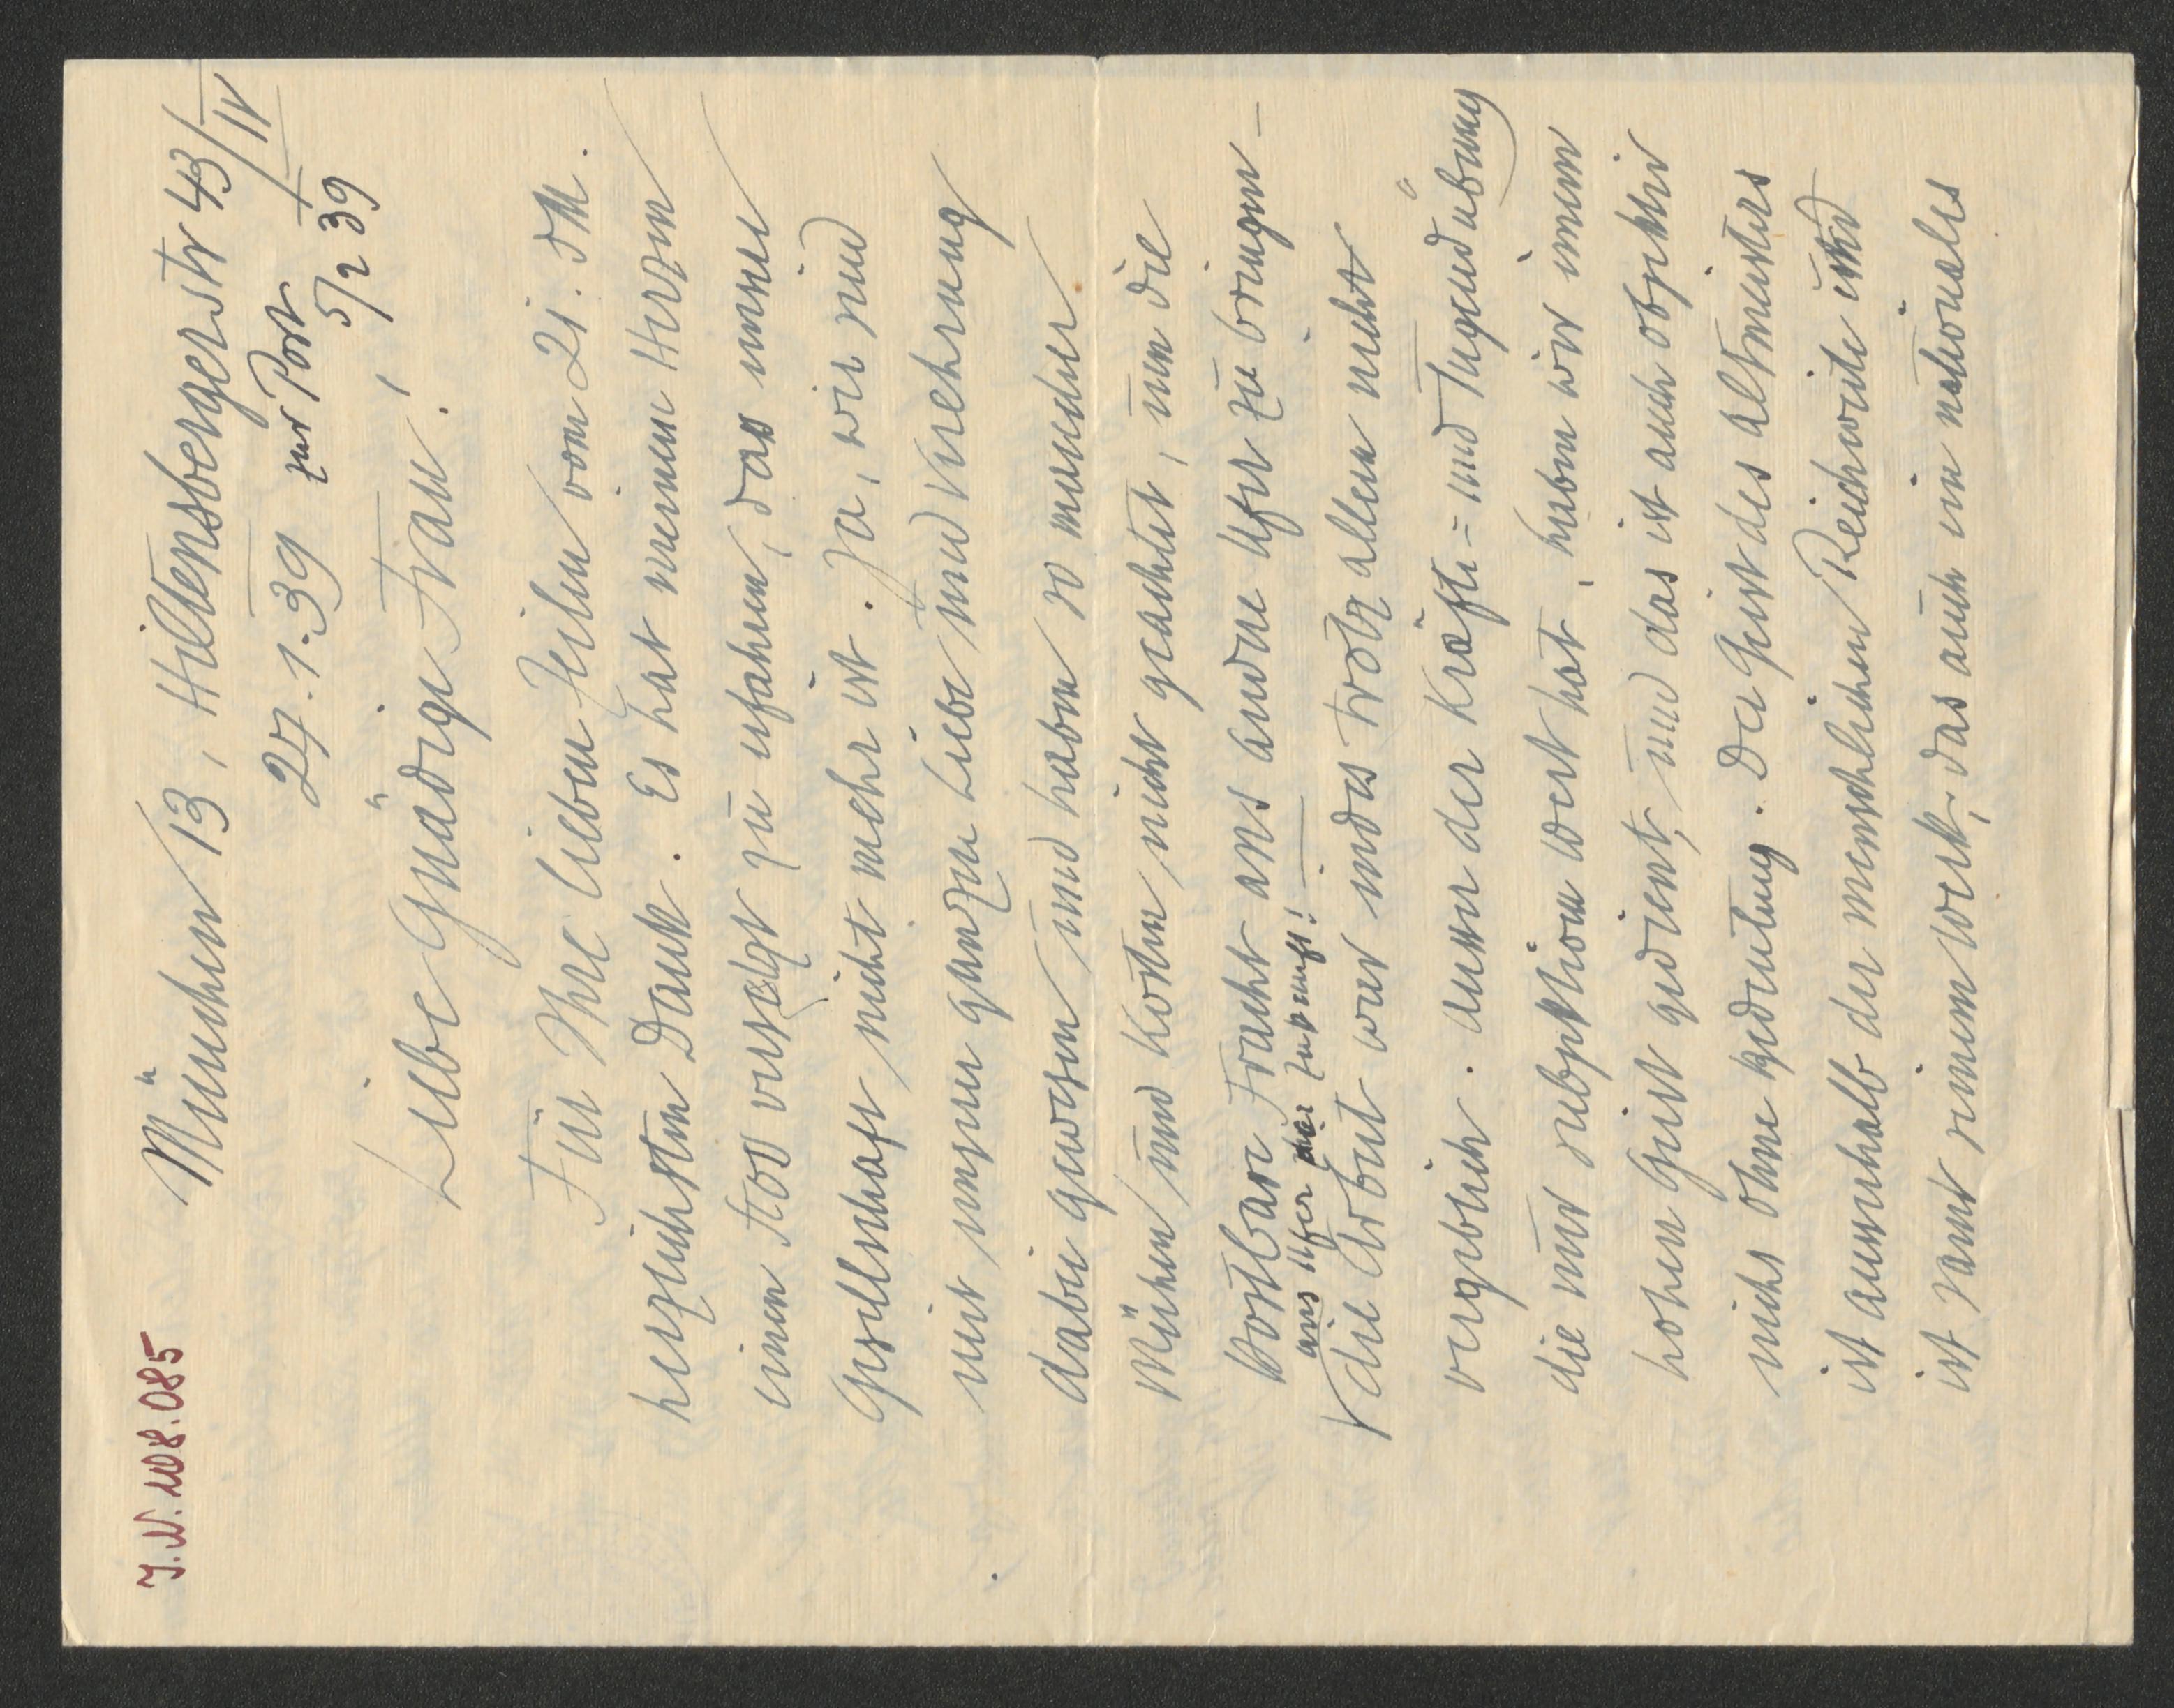 J.N. 108.085
München 13, Hiltensbergerstr 43/IV
27.1.39 zur Post 5/2 39
Liebe Gnädige Frau!
Für Ihre lieben Zeilen vom 21. dM.
herzlichsten Dank. Es hat meinem Herzen
einen Stoß versetzt zu erfahren, das unsre
Gesellschaft nicht mehr ist. Ja, wir sind
mit unsrer ganzen Liebe und Verehrung
dabei gewesen und haben so mancher
Mühen und Kosten nicht geachtet, um die
kostbare Fracht ans andre Ufer zu bringen –
ans Ufer der Zukunft! –
die Arbeit war indes trotz allem nicht
vergeblich. Ausser der Kräfte= und Tugendübung
die nur subjektiven Wert hat, haben wir einem
hohen Geist gedient, und das ist auch objektiv
nichts ohne Bedeutung. Der Geist des Altmeisters
ist ausserhalb der menschlichen Reichweite und
ist samt seinem Werk, das auch ein nationales